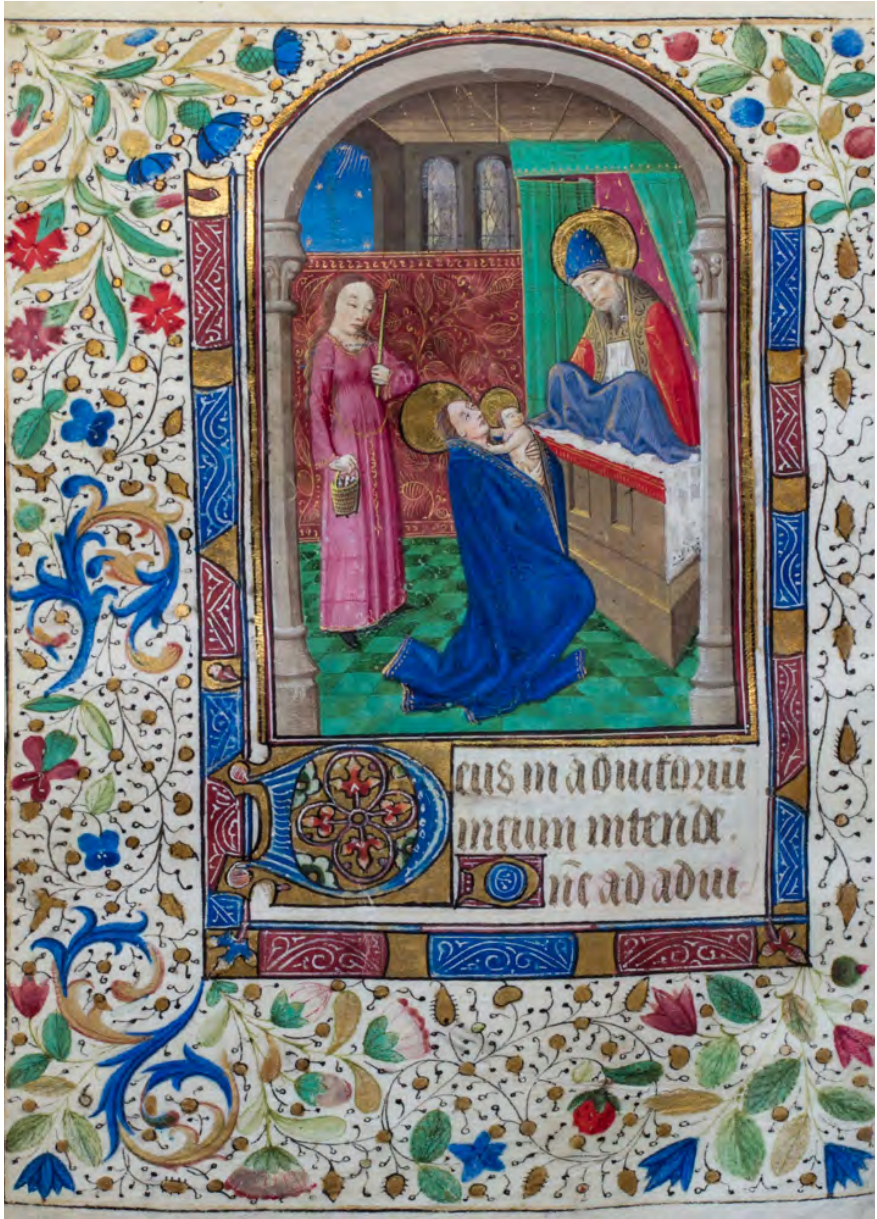 Deus in adiutoriū
meum intende.
Dn̄e ad adiu-